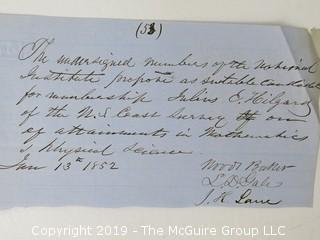 (53)
The undersigned members of the National
Institute propose as suitable candidate
for membership Julius E. Hilgard
of the U.S. Coast Survey
of attainments in Mathematics
& Physical Science
Jan 13th 1852
Woods Baker
L. D. Gale
J. H. Lane
Copyright 2019 - The McGuire Group LLC